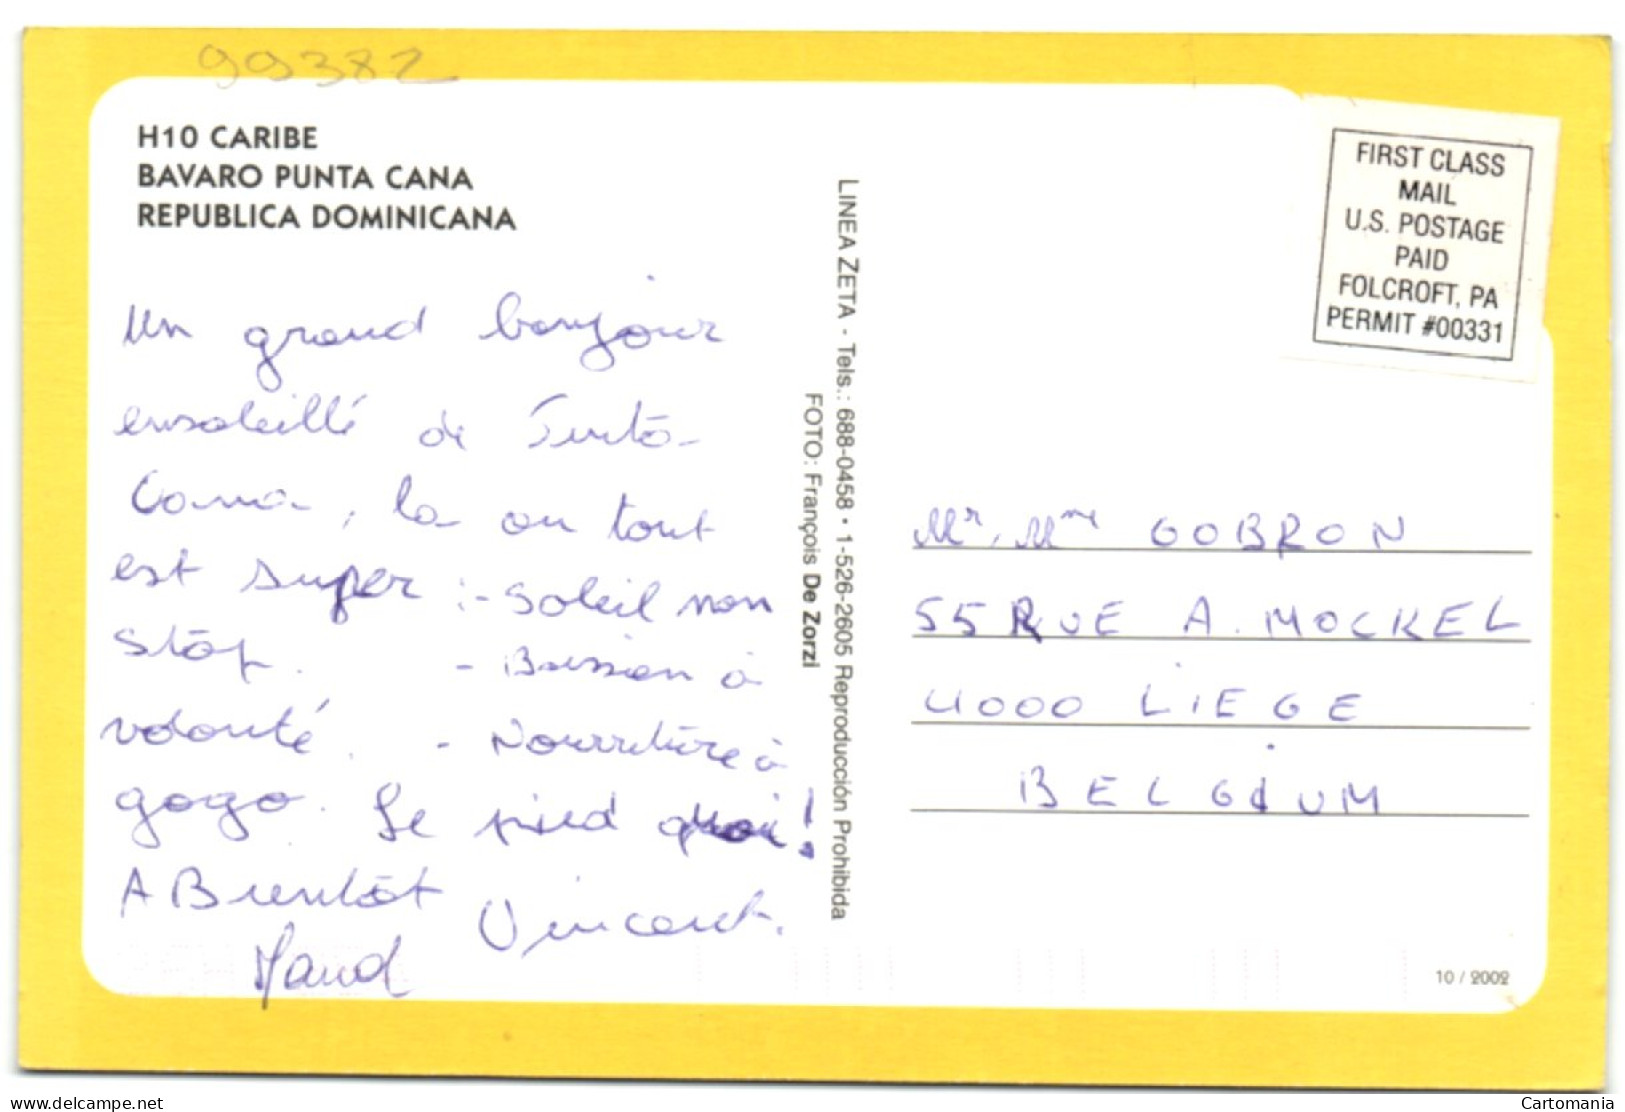 99382
H10 CARIBE
BAVARO PUNTA CANA
REPUBLICA DOMINICANA
FIRST CLASS
MAIL
U.S. POSTAGE
PAID
FOLCROFT, PA
PERMIT #00331
Un grand bonjour
ensoleillé de Punta-
Cana, la ou tout
est super :- Soleil non
stop. - Boisson à
volonté. - Nourriture à
gogo. Le pied quoi!
A Bientôt
Vincent.
Maud
LINEA ZETA - Tels.: 688-0458 • 1-526-2605 Reproducción Prohibida
FOTO: François De Zorzi
Mr, Mme GOBRON
55 RUE A. MOCKEL
4000 LIEGE
BELGIUM
10 / 2002
www.delcampe.net
Cartomania